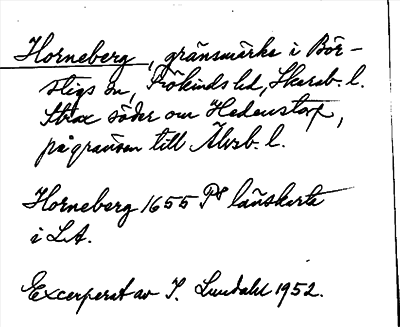 Horneberg, gränsmärke i Bör-
stigs sn, Frökinds hd, Skarab. l.
Strax söder om Hedenstorp,
på gränsen till Älvsb. l.
Horneberg 1655 PS länskarta
i LA.
Excerperat av I. Lundahl 1952.